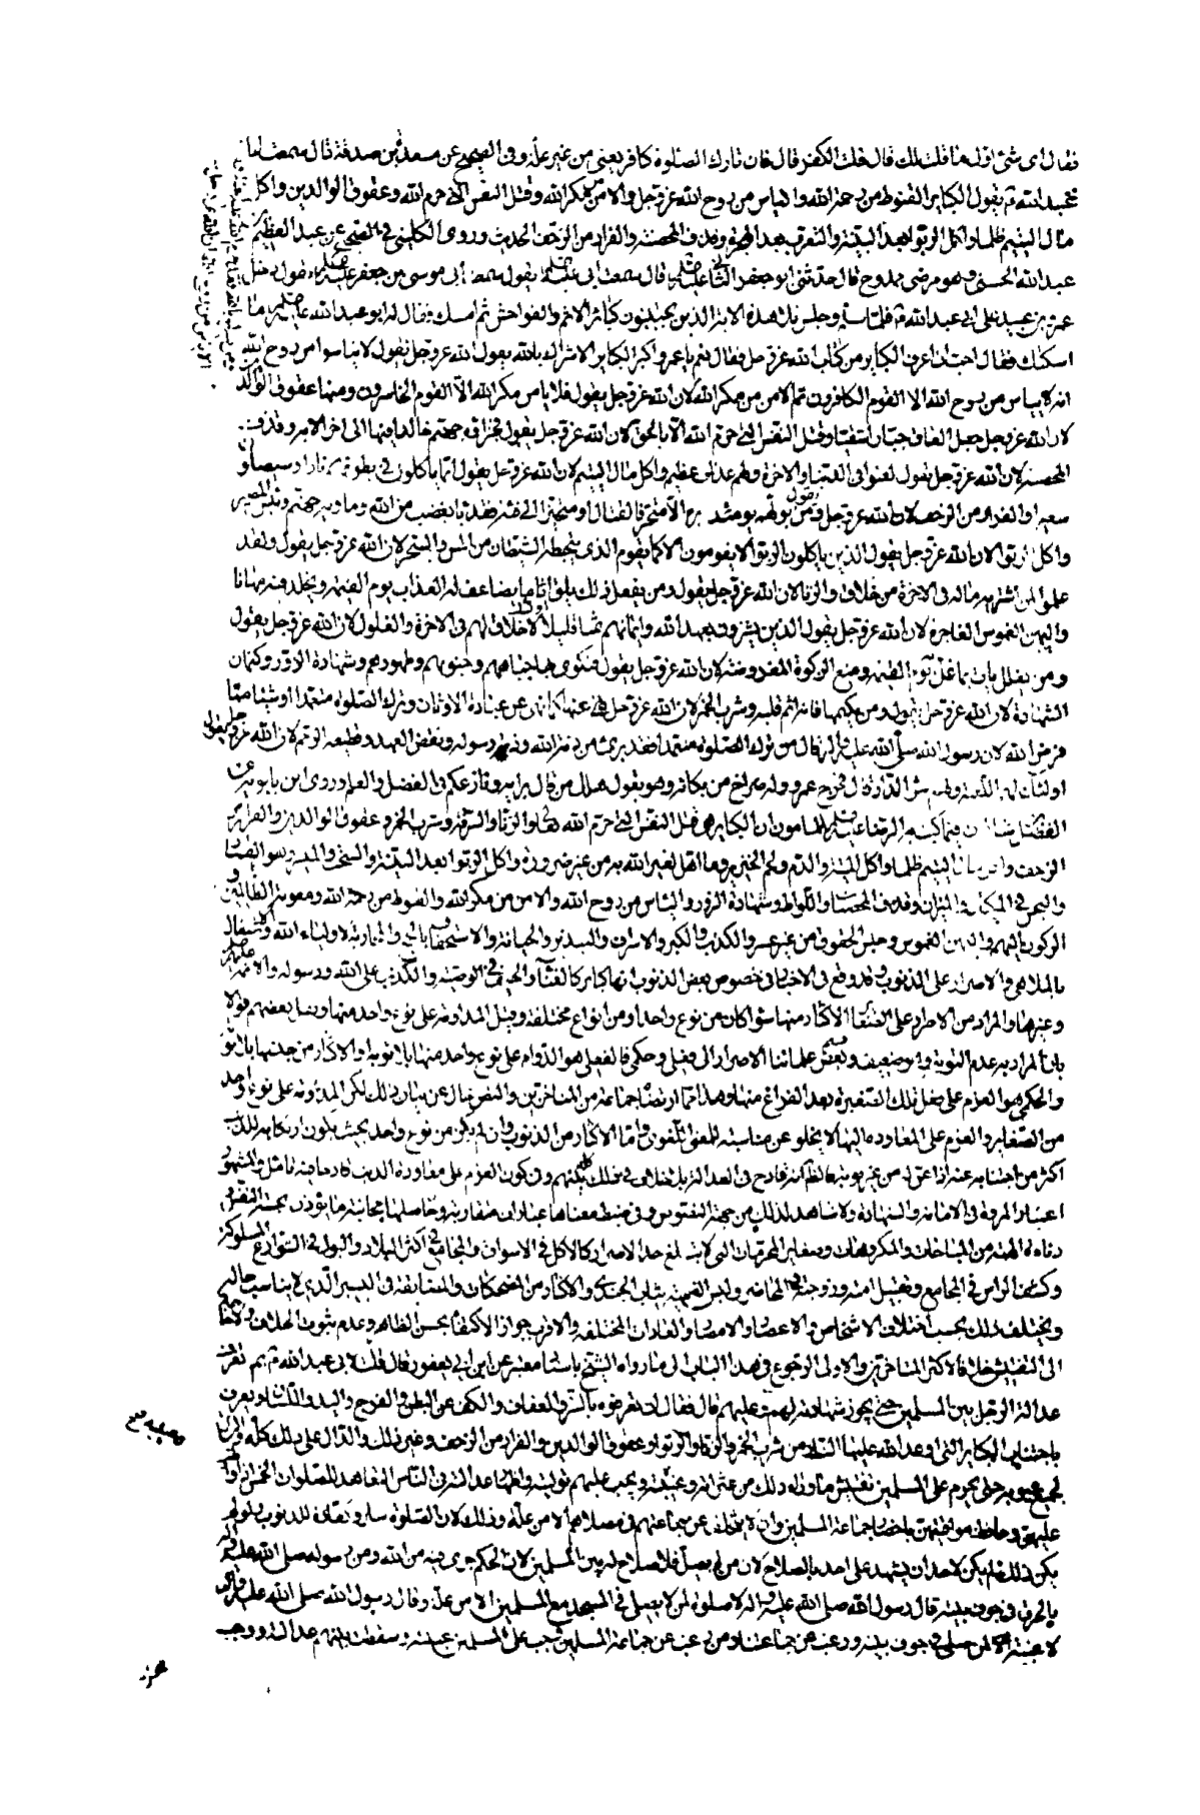 فقال اى شئ اول ما قلت لك قال قلت الكفر قال فان تارك الصلوة كافر يعنى من غير علة وفى الصحيح عن مسعدة بن صدقة قال سمعت ابا
عبد الله ع يقول الكباير القنوط من رحمة الله والياس من روح الله عز وجل والامن من مكر الله وقتل النفس التى حرم الله وعقوق الوالدين واكل
مال اليتيم ظلما واكل الربوا بعد البينة والتعرب بعد الهجرة وقذف المحصنة والفرار من الزحف الحديث وروى الكلينى فى الصحيح عن عبد العظيم بن
عبد الله الحسنى وهو مرضى ممدوح قال حدثنى ابو جعفر الثانى عليه السلم قال سمعت ابى عليه السلم يقول سمعت ابى موسى بن جعفر عليه السلم يقول دخل
عمرو بن عبيد على ابى عبد الله ع فلما سلم وجلس تلا هذه الاية الذين يجتنبون كبائر الاثم والفواحش ثم امسك فقال له ابو عبد الله عليه السلم ما
اسكتك فقال احب ان اعرف الكباير من كتاب الله عز وجل فقال نعم يا عمرو اكبر الكباير الاشراك بالله يقول الله عز وجل يقول لا تياسوا من روح الله
انه لا يياس من روح الله الا القوم الكافرون ثم الامن من مكر الله لان الله عز وجل يقول فلا يامن مكر الله الا القوم الخاسرون ومنها عقوق الوالد
لان الله عز وجل جعل العاق جبارا شقيا وقتل النفس التى حرم الله الا بالحق لان الله عز وجل يقول فجزاؤه جهنم خالدا فيها الى اخر الاية وقذف
المحصنة لان الله عز وجل يقول لعنوا فى الدنيا والاخرة ولهم عذاب عظيم واكل مال اليتيم لان الله عز وجل يقول انما ياكلون فى بطونهم نارا وسيصلون
سعيرا والفرار من الزحف لان الله عز وجل يقول ومن يولهم يومئذ دبره الا متحرفا لقتال او متحيزا الى فئة فقد باء بغضب من الله وماويه جهنم وبئس المصير
واكل الربوا لان الله عز وجل يقول الذين ياكلون الربوا لا يقومون الا كما يقوم الذى يتخبطه الشيطان من المس والسحر لان الله عز وجل يقول ولقد
علموا لمن اشتريه ماله فى الاخرة من خلاق والزنا لان الله عز وجل يقول ومن يفعل ذلك يلق اثاما يضاعف له العذاب يوم القيمة ويخلد فيه مهانا
واليمين الغموس الفاجرة لان الله عز وجل يقول الذين يشترون بعهد الله وايمانهم ثمنا قليلا اولئك لا خلاق لهم فى الاخرة والغلول لان الله عز وجل يقول
ومن يغلل يات بما غل يوم القيمة ومنع الزكوة المفروضة لان الله عز وجل يقول فتكوى بها جباههم وجنوبهم وظهورهم وشهادة الزور وكتمان
الشهادة لان الله عز وجل يقول ومن يكتمها فانه اثم قلبه وشرب الخمر لان الله عز وجل نهى عنها كما نهى عن عبادة الاوثان وترك الصلوة متعمدا او شيئا مما
فرض الله لان رسول الله صلى الله عليه واله قال من ترك الصلوة متعمدا فقد برئ من ذمة الله وذمة رسوله ونقض العهد وقطيعة الرحم لان الله عز وجل يقول
اولئك لهم اللعنة ولهم سوء الدار قال فخرج عمرو وله صراخ من بكائه وهو يقول هلك من قال برايه ونازعكم فى الفضل والعلم وروى ابن بابويه عن
الفضل بن شاذان فيما كتبه الرضا عليه السلم للمامون ان الكباير هى قتل النفس التى حرم الله تعالى والزنا والسرقة وشرب الخمر وعقوق الوالدين والفرار من
الزحف واكل مال اليتيم ظلما واكل الميتة والدم ولحم الخنزير وما اهل لغير الله به من غير ضرورة واكل الربوا بعد البينة والسحت والميسر وهو القمار
والبخس فى المكيال والميزان وقذف المحصنات واللواط وشهادة الزور والياس من روح الله والامن من مكر الله والقنوط من رحمة الله ومعونة الظالمين و
الركون اليهم واليمين الغموس وحبس الحقوق من غير عسر والكذب والكبر والاسراف والتبذير والخيانة والاستخفاف بالحج والمحاربة لاولياء الله والاشتغال
بالملاهى والاصرار على الذنوب وقد وقع فى الاخبار فى خصوص بعض الذنوب انها كباير كالغناء والحيف فى الوصية والكذب على الله ورسوله والائمة عليهم السلم
وغيرها والمراد من الاصرار على الصغاير الاكثار منها سواء كان من نوع واحد او من انواع مختلفة وقيل المداومة على نوع واحد منها
بان المراد به عدم التوبة وهو ضعيف وقسم بعض علمائنا الاصرار الى فعلى وحكمى فالفعلى هو الدوام على نوع واحد منها بلا توبة او الاكثار من جنسها بلا توبة
والحكمى هو العزم على فعل تلك الصغيرة بعد الفراغ منها وهذا مما ارتضاه جماعة من المتاخرين والنص خال عن بيان ذلك لكن المداومة على نوع واحد
من الصغاير والعزم على المعاودة اليها لا يخلو عن مناسبة للمعنى اللغوى واما الاكثار من الذنوب وان لم يكن من نوع واحد بحيث يكون ارتكابه للذنب
اكثر من اجتنابه عنه اذا عن له من غير توبة فالظاهر انه قادح فى العدالة بلا خلاف فى ذلك بينهم وفى كون العزم على معاودة الذنب قادحا فيه تامل والمشهور
اعتبار المروة فى الامامة والشهادة ولا شاهد لذلك من جهة النصوص وفى ضبط معناها عبارات متقاربة وحاصلها مجانبة ما يؤذن بخسة النفس و
دناءة الهمة من المباحات والمكروهات وصغاير المحرمات التى لا تبلغ حد الاصرار كالاكل فى الاسواق والمجامع فى اكثر البلاد والبول فى الشوارع المسلوكة
وكشف الراس فى المجامع وتقبيل امته وزوجته فى المحاضر ولبس الفقيه ثياب الجندى والاكثار من المضحكات والمضايقة فى اليسير الذى لا يناسب حاله
ويختلف ذلك بحسب اختلاف الاشخاص والاعصار والامصار والعادات المختلفة والاقرب جواز الاكتفاء بحسن الظاهر وعدم ثبوت الخلاف
الى التفتيش خلافا لاكثر المتاخرين والاولى الرجوع فى هذا الباب الى ما رواه الشيخ باسناد معتبر عن ابن ابى يعفور قال قلت لابى عبد الله ع بم تعرف
عدالة الرجل بين المسلمين حتى يجوز شهادته لهم وعليهم قال فقال ان تعرفوه بالستر والعفاف والكف عن البطن والفرج واليد واللسان ويعرف
باجتناب الكباير التى اوعد الله عليها النار من شرب الخمر والزنا والربوا وعقوق الوالدين والفرار من الزحف وغير ذلك والدال على ذلك كله والساتر
لجميع عيوبه حتى يحرم على المسلمين تفتيش ما وراء ذلك من عثراته وغيبته ويجب عليهم توليته واظهار عدالته فى الناس التعاهد للصلوات الخمس اذا
عليهن وحافظ مواقيتهن باحضار جماعة المسلمين وان لا يتخلف عن جماعتهم فى مصلاهم الا من علة وذلك لان الصلوة ستر وكفارة للذنوب ولو لم
يكن ذلك لم يكن لاحد ان يشهد على احد بالصلاح لان من لم يصل فلا صلاح له بين المسلمين لان الحكم جرى فيه من الله ومن رسوله صلى الله عليه واله
بالحرق فى جوف بيته قال رسول الله صلى الله عليه واله لا صلوة لمن لا يصلى فى المسجد مع المسلمين الا من علة وقال رسول الله صلى الله عليه واله
لا غيبة الا لمن صلى فى جوف بيته ورغب عن جماعتنا ومن رغب عن جماعة المسلمين وجب على المسلمين غيبته وسقطت بينهم عدالته ووجب